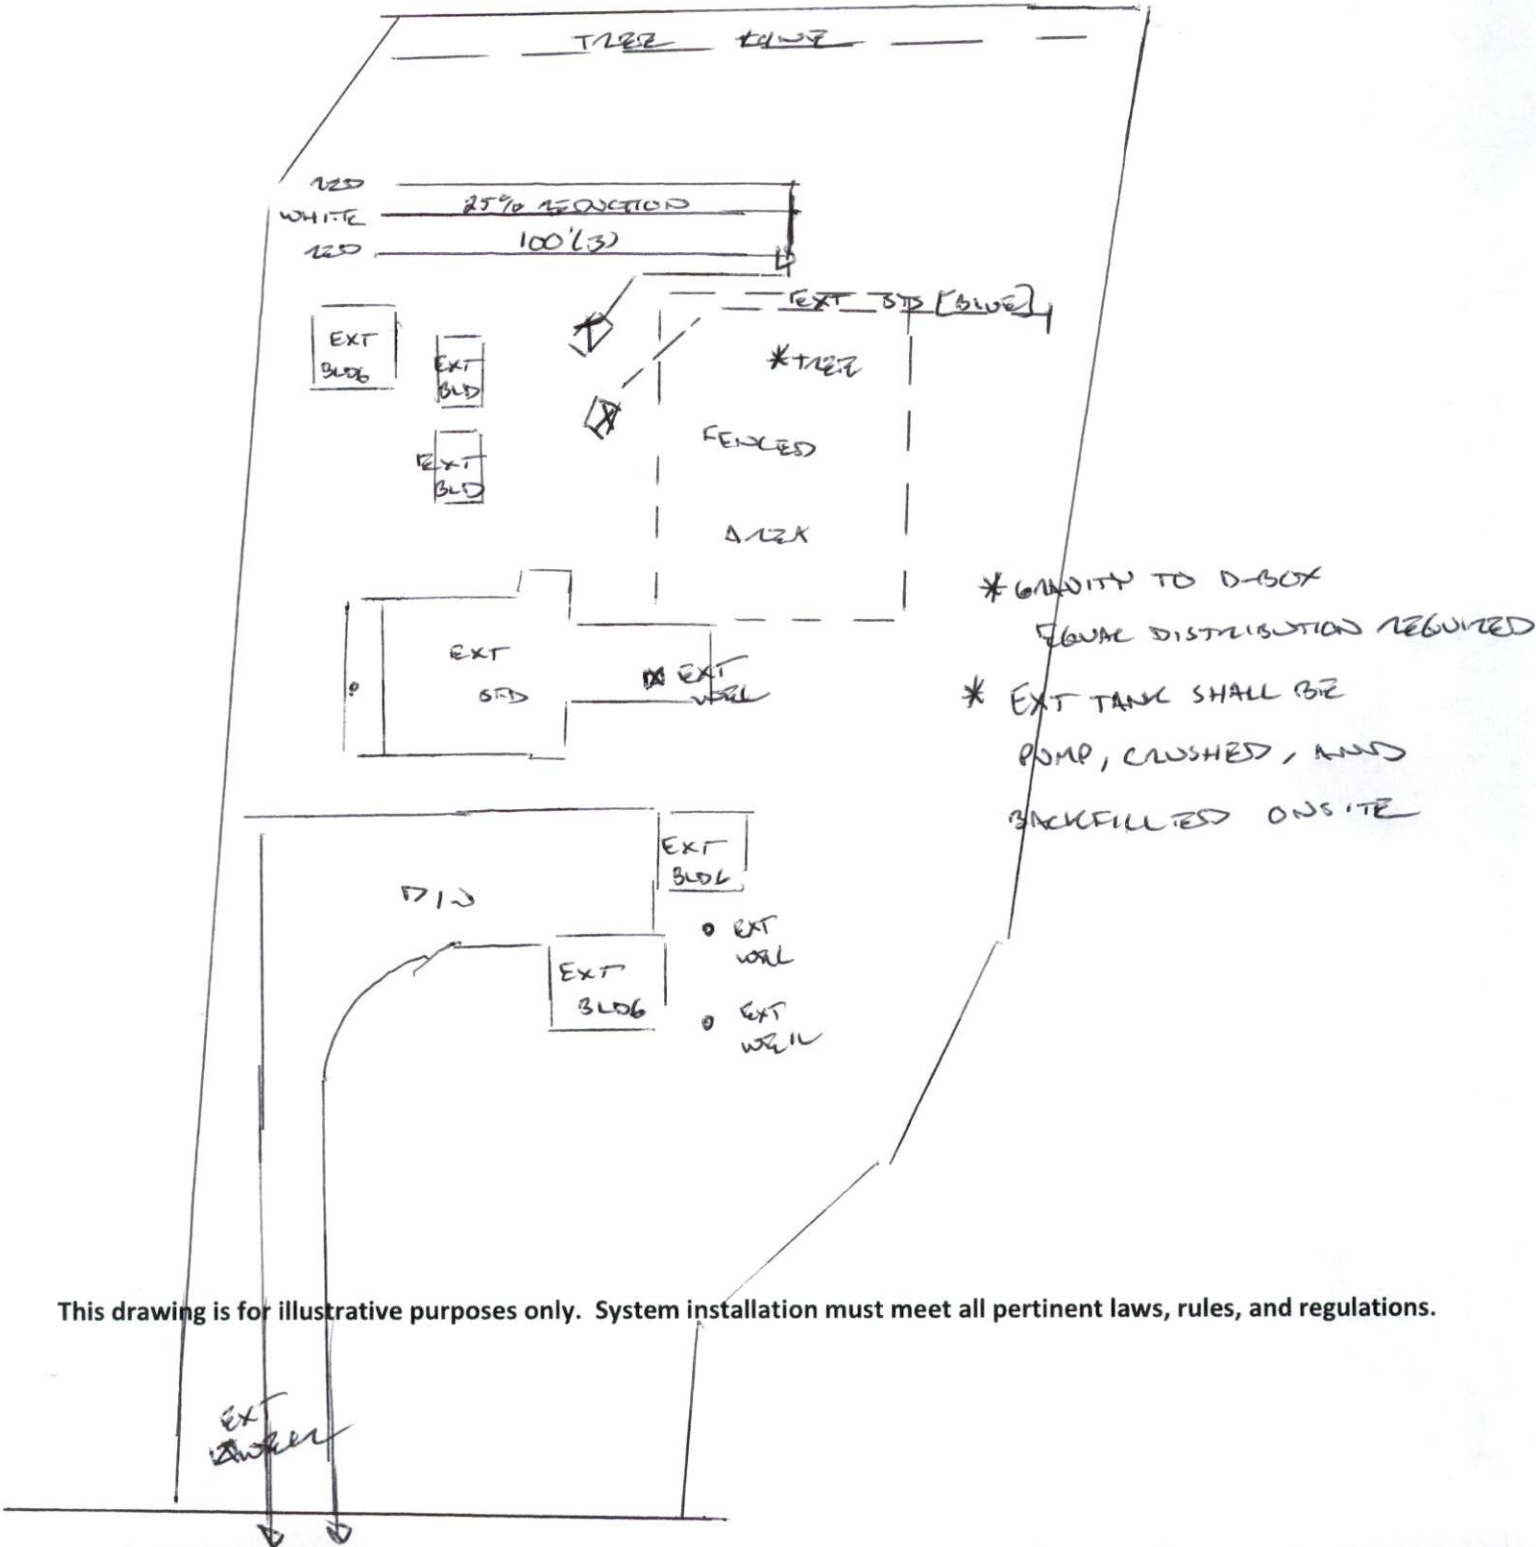 TREE LINE
RED
25% REDUCTION
WHITE
100'(3)
RED
EXT STS [BLUE]
EXT
BLDG
EXT
BLD
*TREE
EXT
BLD
FENCED
AREA
*GRAVITY TO D-BOX
EQUAL DISTRIBUTION REQUIRED
* EXT TANK SHALL BE
PUMP, CRUSHED, AND
BACKFILLED ONSITE
EXT
SFD
EXT
WELL
P
EXT
BLDG
D/W
EXT
WELL
EXT
BLDG
EXT
WELL
This drawing is for illustrative purposes only. System installation must meet all pertinent laws, rules, and regulations.
EXT